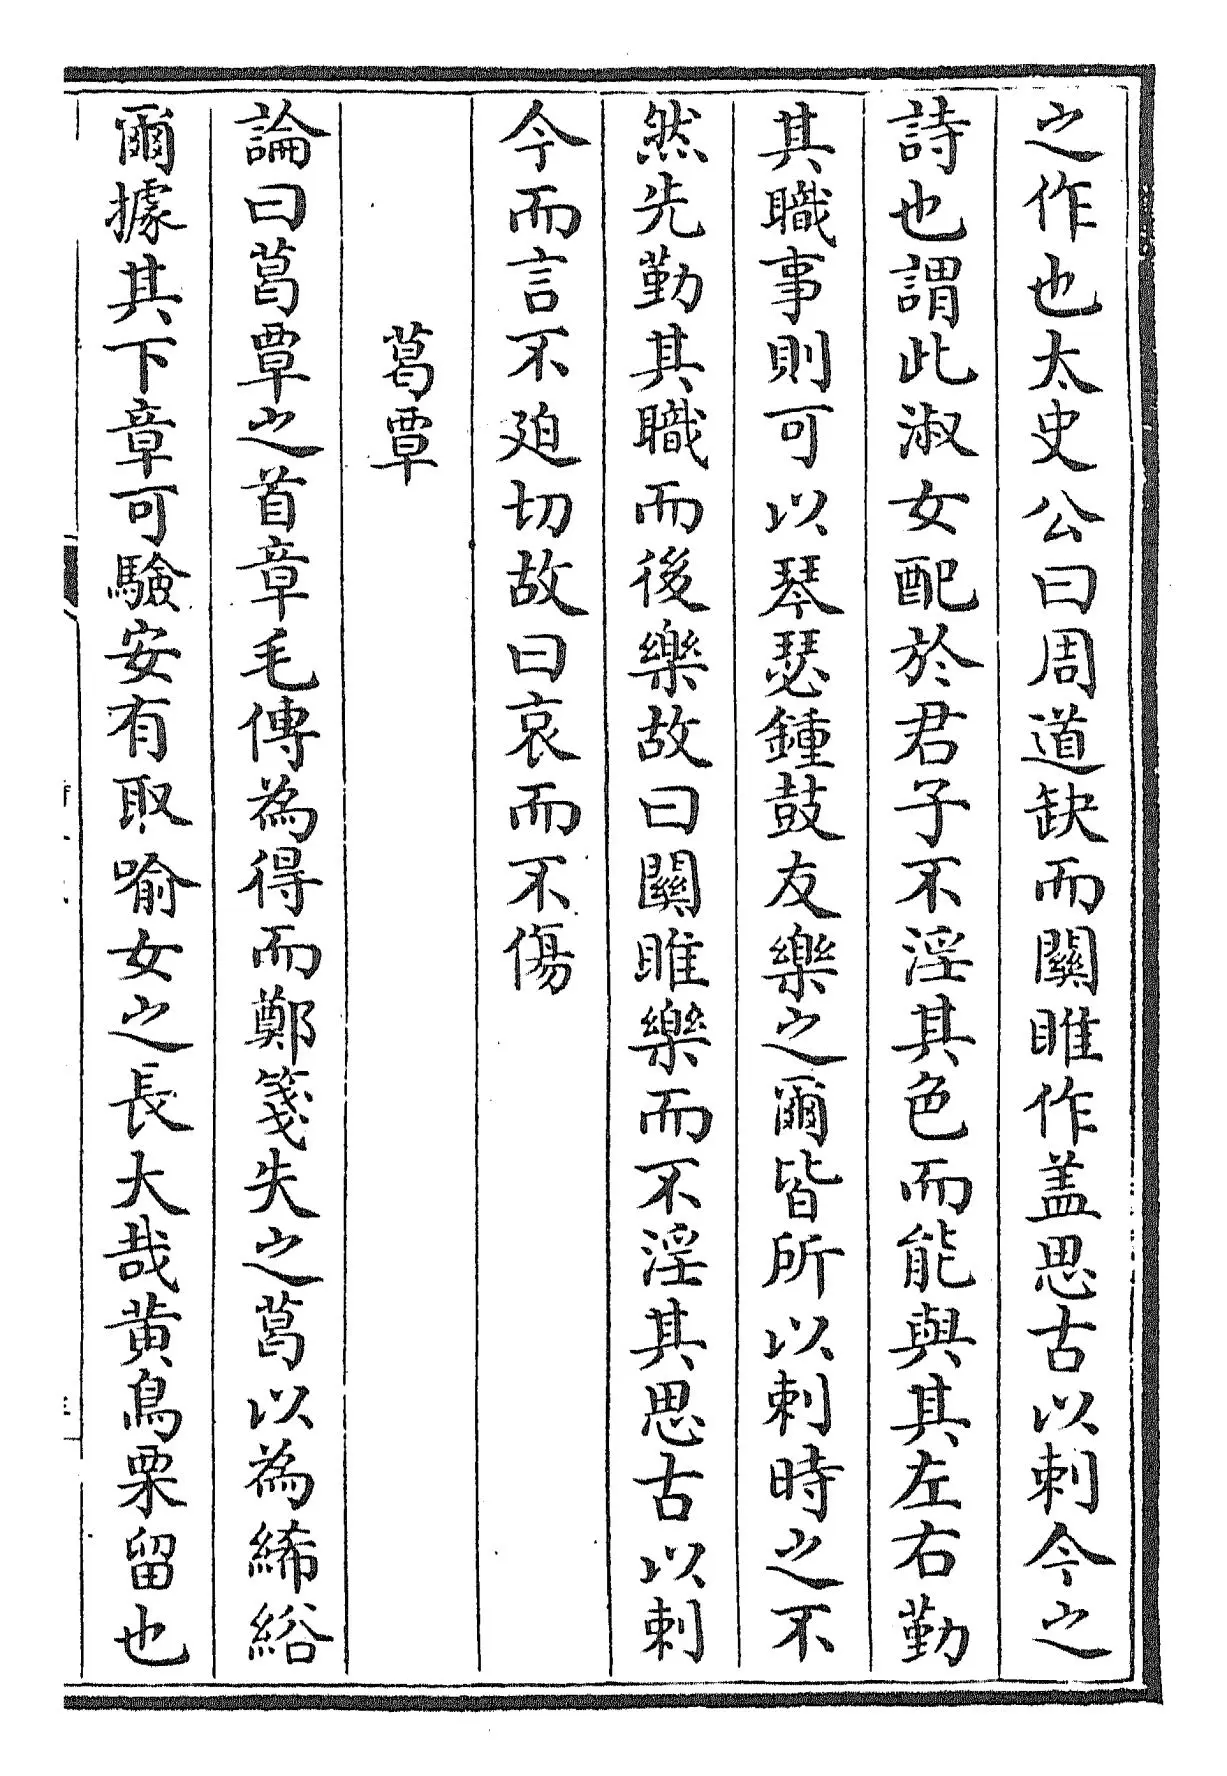 之作也太史公曰周道缺而關雎作盖思古以刺今之
詩也謂此淑女配於君子不淫其色而能與其左右勤
其職事則可以琴瑟鍾鼓友樂之爾皆所以刺時之不
然先勤其職而後樂故曰關雎樂而不淫其思古以刺
今而言不廹切故曰哀而不傷
葛覃
論曰葛覃之首章毛傳為得而鄭箋失之葛以為絺綌
爾據其下章可驗安有取喻女之長大哉黄鳥栗留也